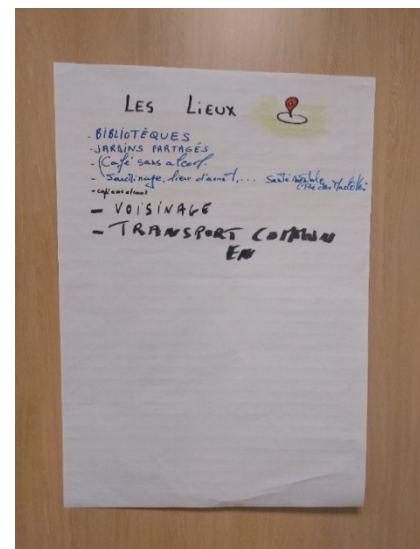 LES LIEUX
- BIBLIOTÈQUES
- JARDINS PARTAGÉS
- (Café sans alcool.
- Jardinage, lieu d'arrêt,... Santé mentale
- café sans alcool
- VOISINAGE
- TRANSPORT COMMUN
EN